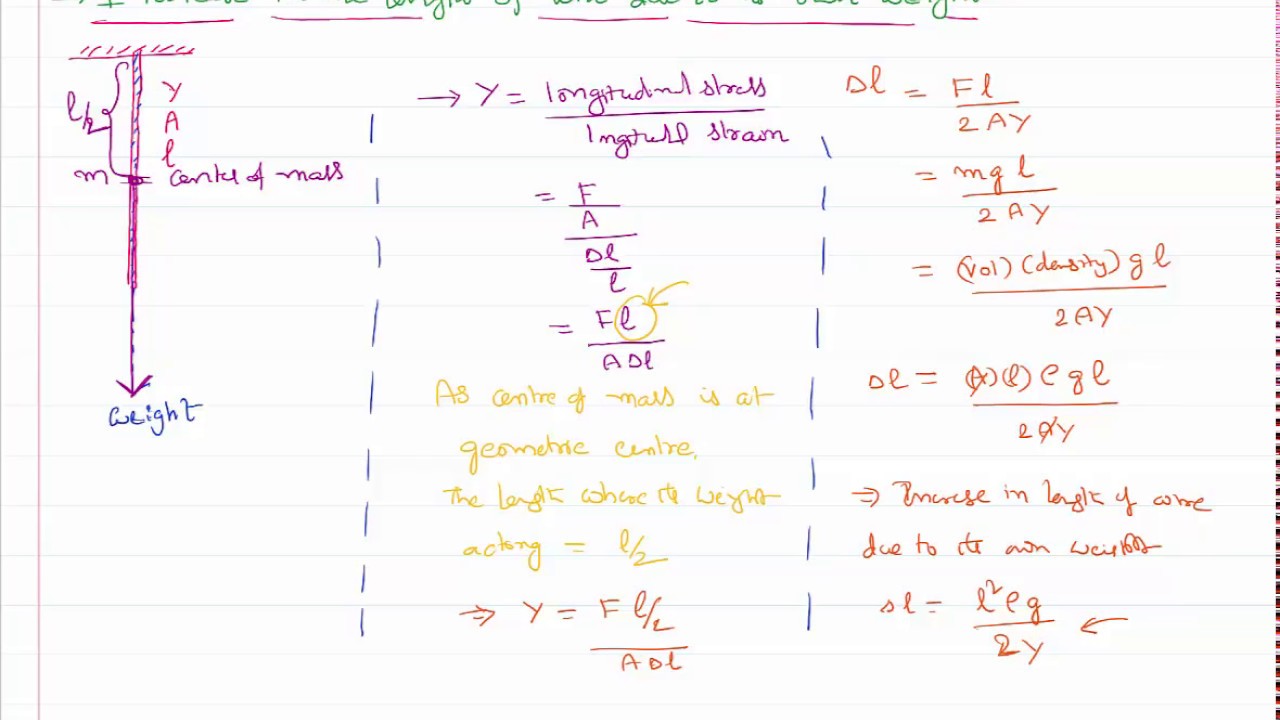 Increase in the length of wire due to its own weight
l/2
Y
A
l
m = centre of mass
weight
→ Y = longitudinal stress
longitudl strain
= F
A
Dl
l
= Fl
A Dl
As centre of mass is at
geometric centre.
The length where its weight
acting = l/2
⇒ Y = F l/2
A Dl
Dl = Fl
2AY
= mg l
2AY
= (vol) (density) g l
2AY
Dl = (A)(l) ρ g l
2AY
⇒ Increase in length of wire
due to its own weight
Dl = l²ρg
2Y